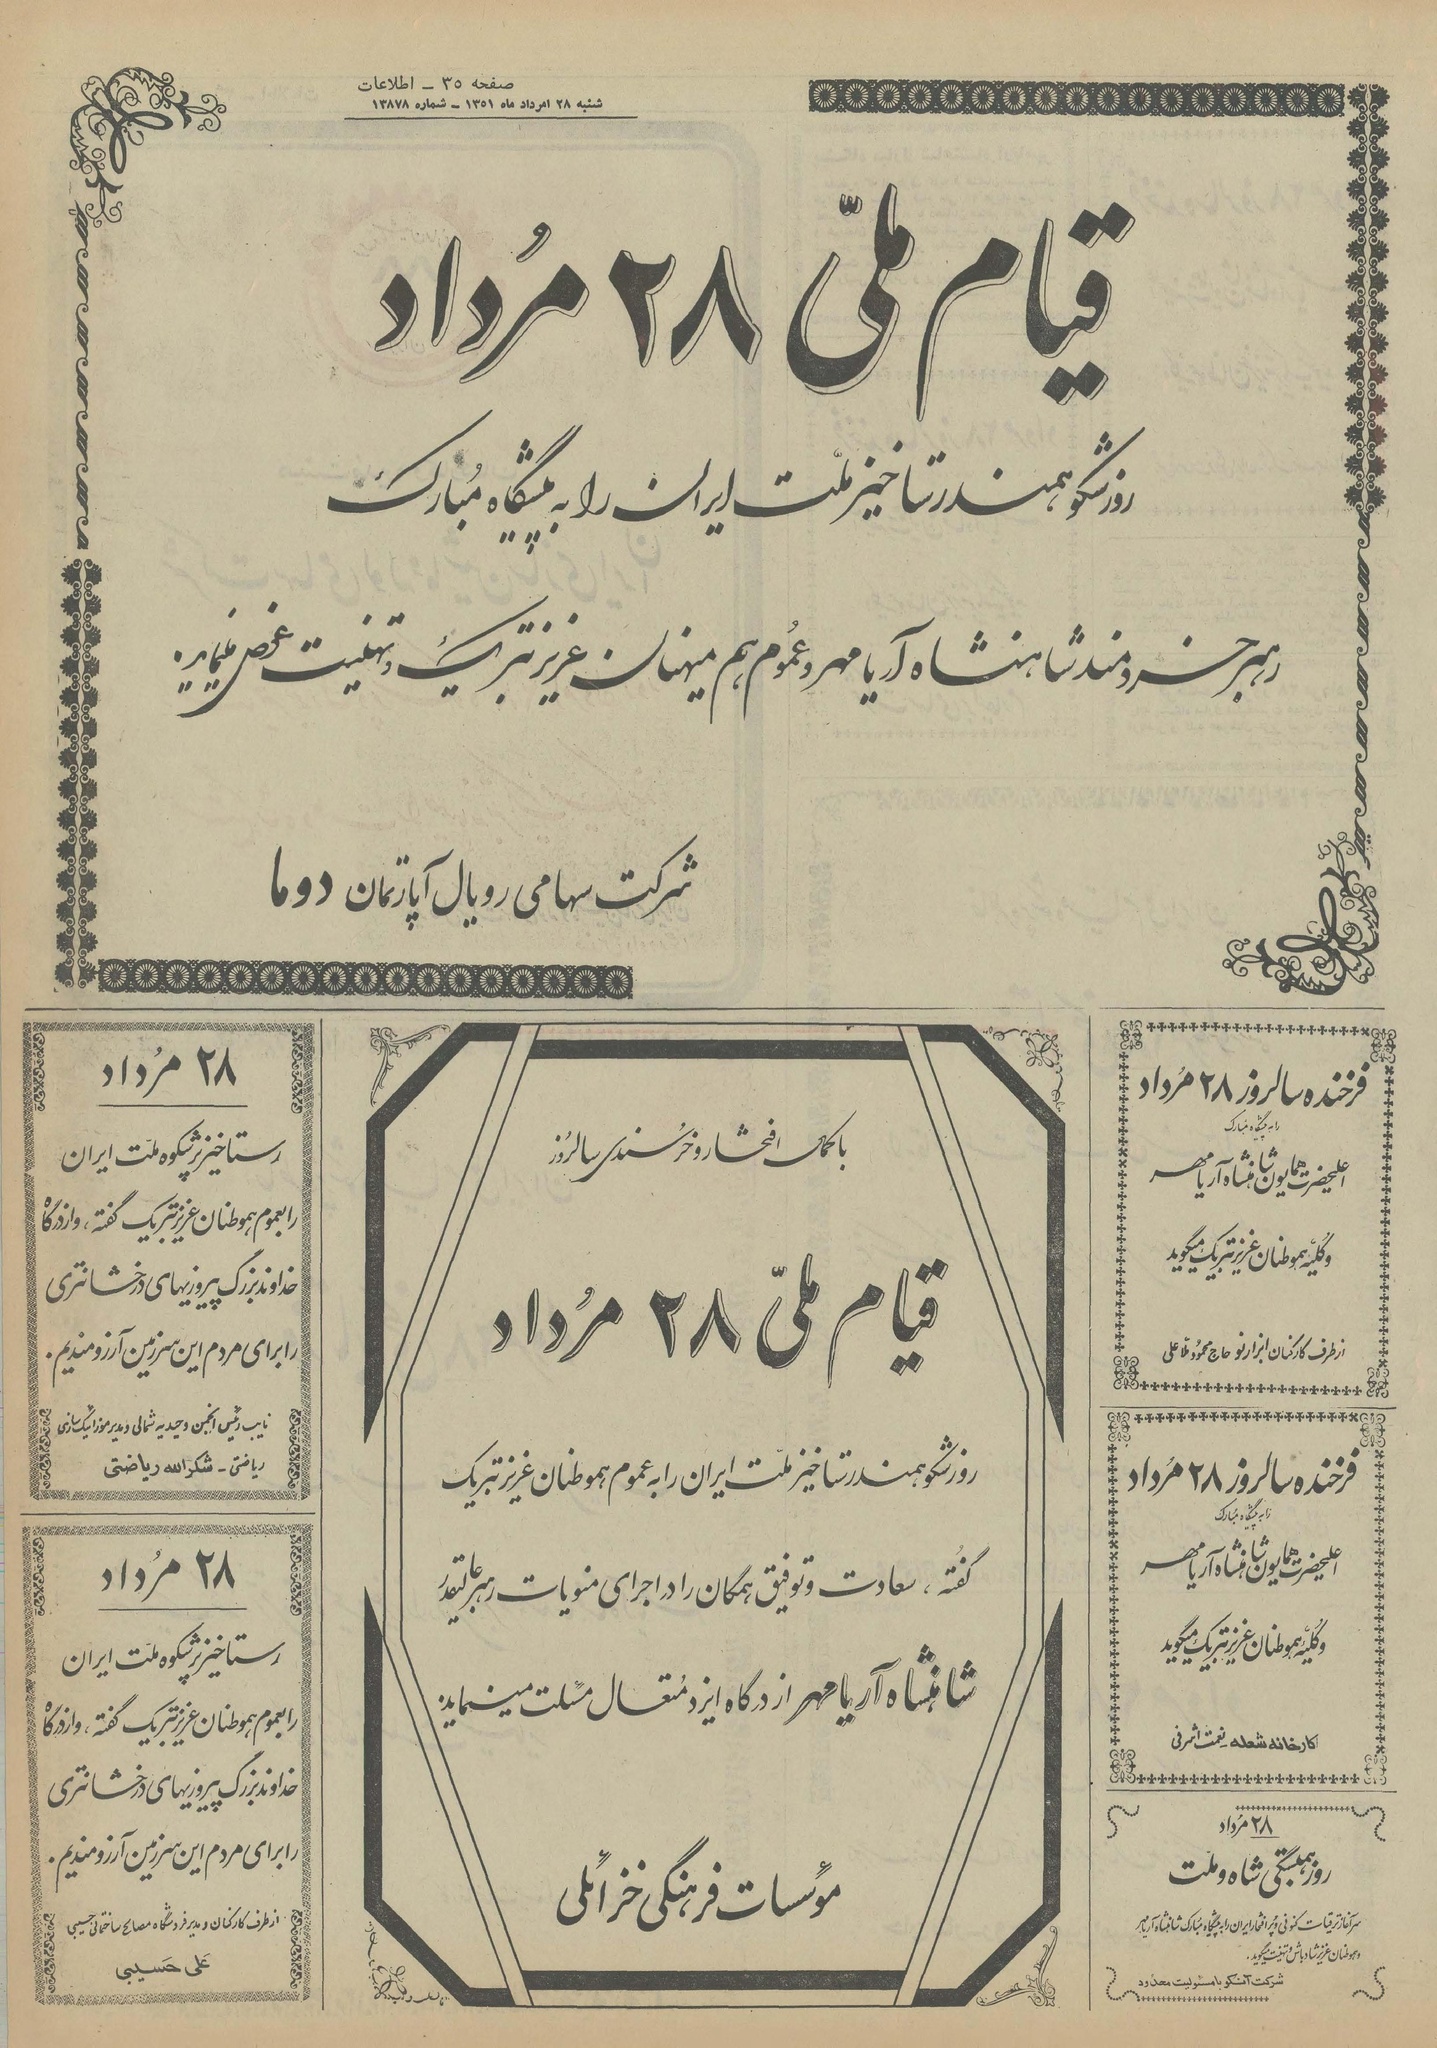 صفحه ۳۵ - اطلاعات
شنبه ۲۸ امرداد ماه ۱۳۵۱ - شماره ۱۳۸۷۸
قیام ملّی ۲۸ مُرداد
روز شکوهمند رستاخیز ملّت ایران را به پیشگاه مُبارک
رهبر خردمند شاهنشاه آریامهر و عمُوم هم میهنان عزیز تبریک و تهنیت عرض مینماید.
شرکت سهامی رویال آپارتمان دوما
فرخنده سالروز ۲۸ مُرداد
را به پیشگاه مبارک
اعلیحضرت همایون شاهنشاه آریامهر
و کلیّه هموطنان عزیز تبریک میگوید
از طرف کارکنان ابزار نو حاج محمود ملاعلی
فرخنده سالروز ۲۸ مُرداد
را به پیشگاه مبارک
اعلیحضرت همایون شاهنشاه آریامهر
و کلیّه هموطنان عزیز تبریک میگوید
کارخانه شعله نعمت اشرفی
۲۸ مُرداد
روز همبستگی شاه و ملّت
سرآغاز ترقیات کنونی و پُر افتخار ایران را به پیشگاه مبارک شاهنشاه آریامهر
و هموطنان عزیز شادباش و تهنیت میگوید.
شرکت آنکو با مسئولیت محدود
با کمال افتخار و خُرسندی سالرُوز
قیام ملّی ۲۸ مُرداد
روز شکوهمند رستاخیز ملّت ایران را به عموم هموطنان عزیز تبریک
گفُته ، سعادت و توفیق همگان را در اجرای منویات رهبر عالیقدر
شاهنشاه آریامهر از درگاه ایزد مُتعال مسئلت مینماید.
مؤسسات فرهنگی خزائلی
۲۸ مُرداد
رستاخیز پُرشکوه ملّت ایران
را بعموم هموطنان عزیز تبریک گفته ، و از درگاه
خداوند بزرگ پیروزیهای درخشانتری
را برای مردم این سرزمین آرزومندیم .
نایب رئیس انجمن وحیدیه شمالی و مدیر موزائیک سازی
ریاضتی - شکرالله ریاضتی
۲۸ مُرداد
رستاخیز پُرشکوه ملّت ایران
را بعموم هموطنان عزیز تبریک گفته ، و از درگاه
خداوند بزرگ پیروزیهای درخشانتری
را برای مردم این سرزمین آرزومندیم .
از طرف کارکنان و مدیر فروشگاه مصالح ساختمانی حسیبی
علی حسیبی